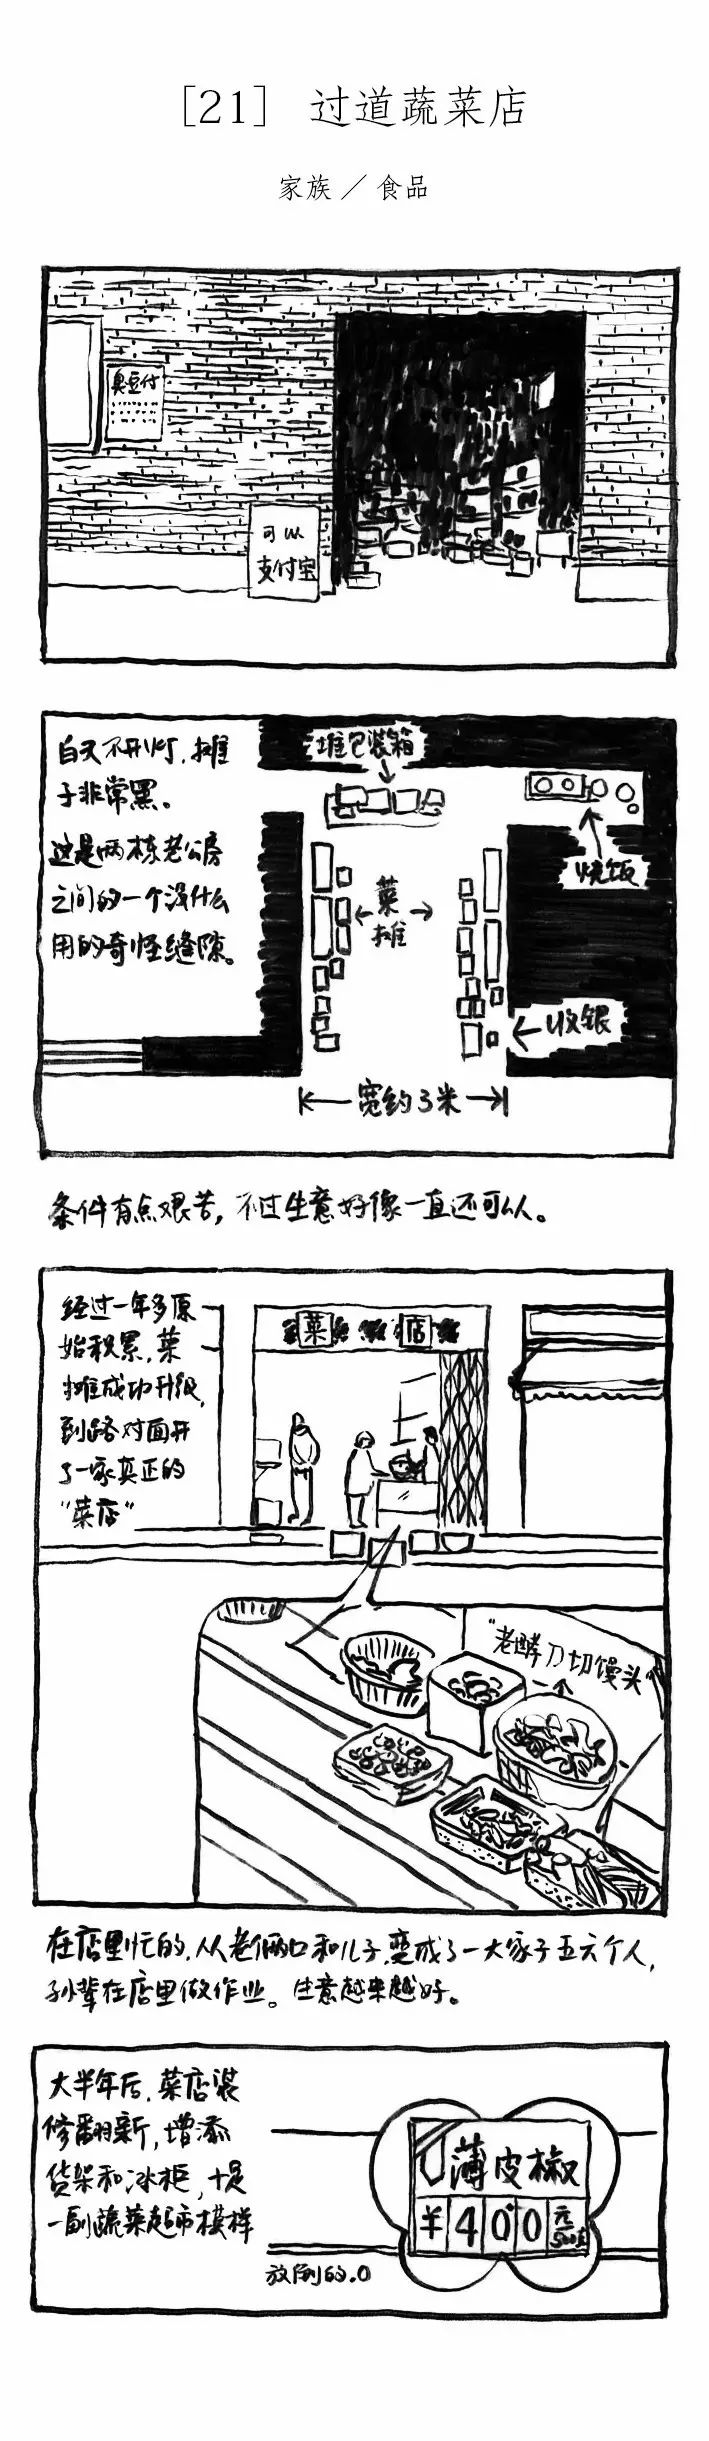 [21] 过道蔬菜店
家族／食品
臭豆付
可以
支付宝
白天不开灯，摊
子非常黑。
这是两栋老公房
之间的一个没什么
用的奇怪缝隙。
堆包装箱
烧饭
菜
摊
收银
宽约3米
条件有点艰苦，不过生意好像一直还可以。
经过一年多原
始积累，菜
摊成功升级，
到路对面开
了一家真正的
“菜店”
菜 店
“老酵刀切馒头”
在店里忙的，从老俩口和儿子，变成了一大家子五六个人，
孙辈在店里做作业。生意越来越好。
大半年后，菜店装
修翻新，增添
货架和冰柜，十足
一副蔬菜超市模样
薄皮椒
¥ 4 0 0 元/500克
放倒的.0